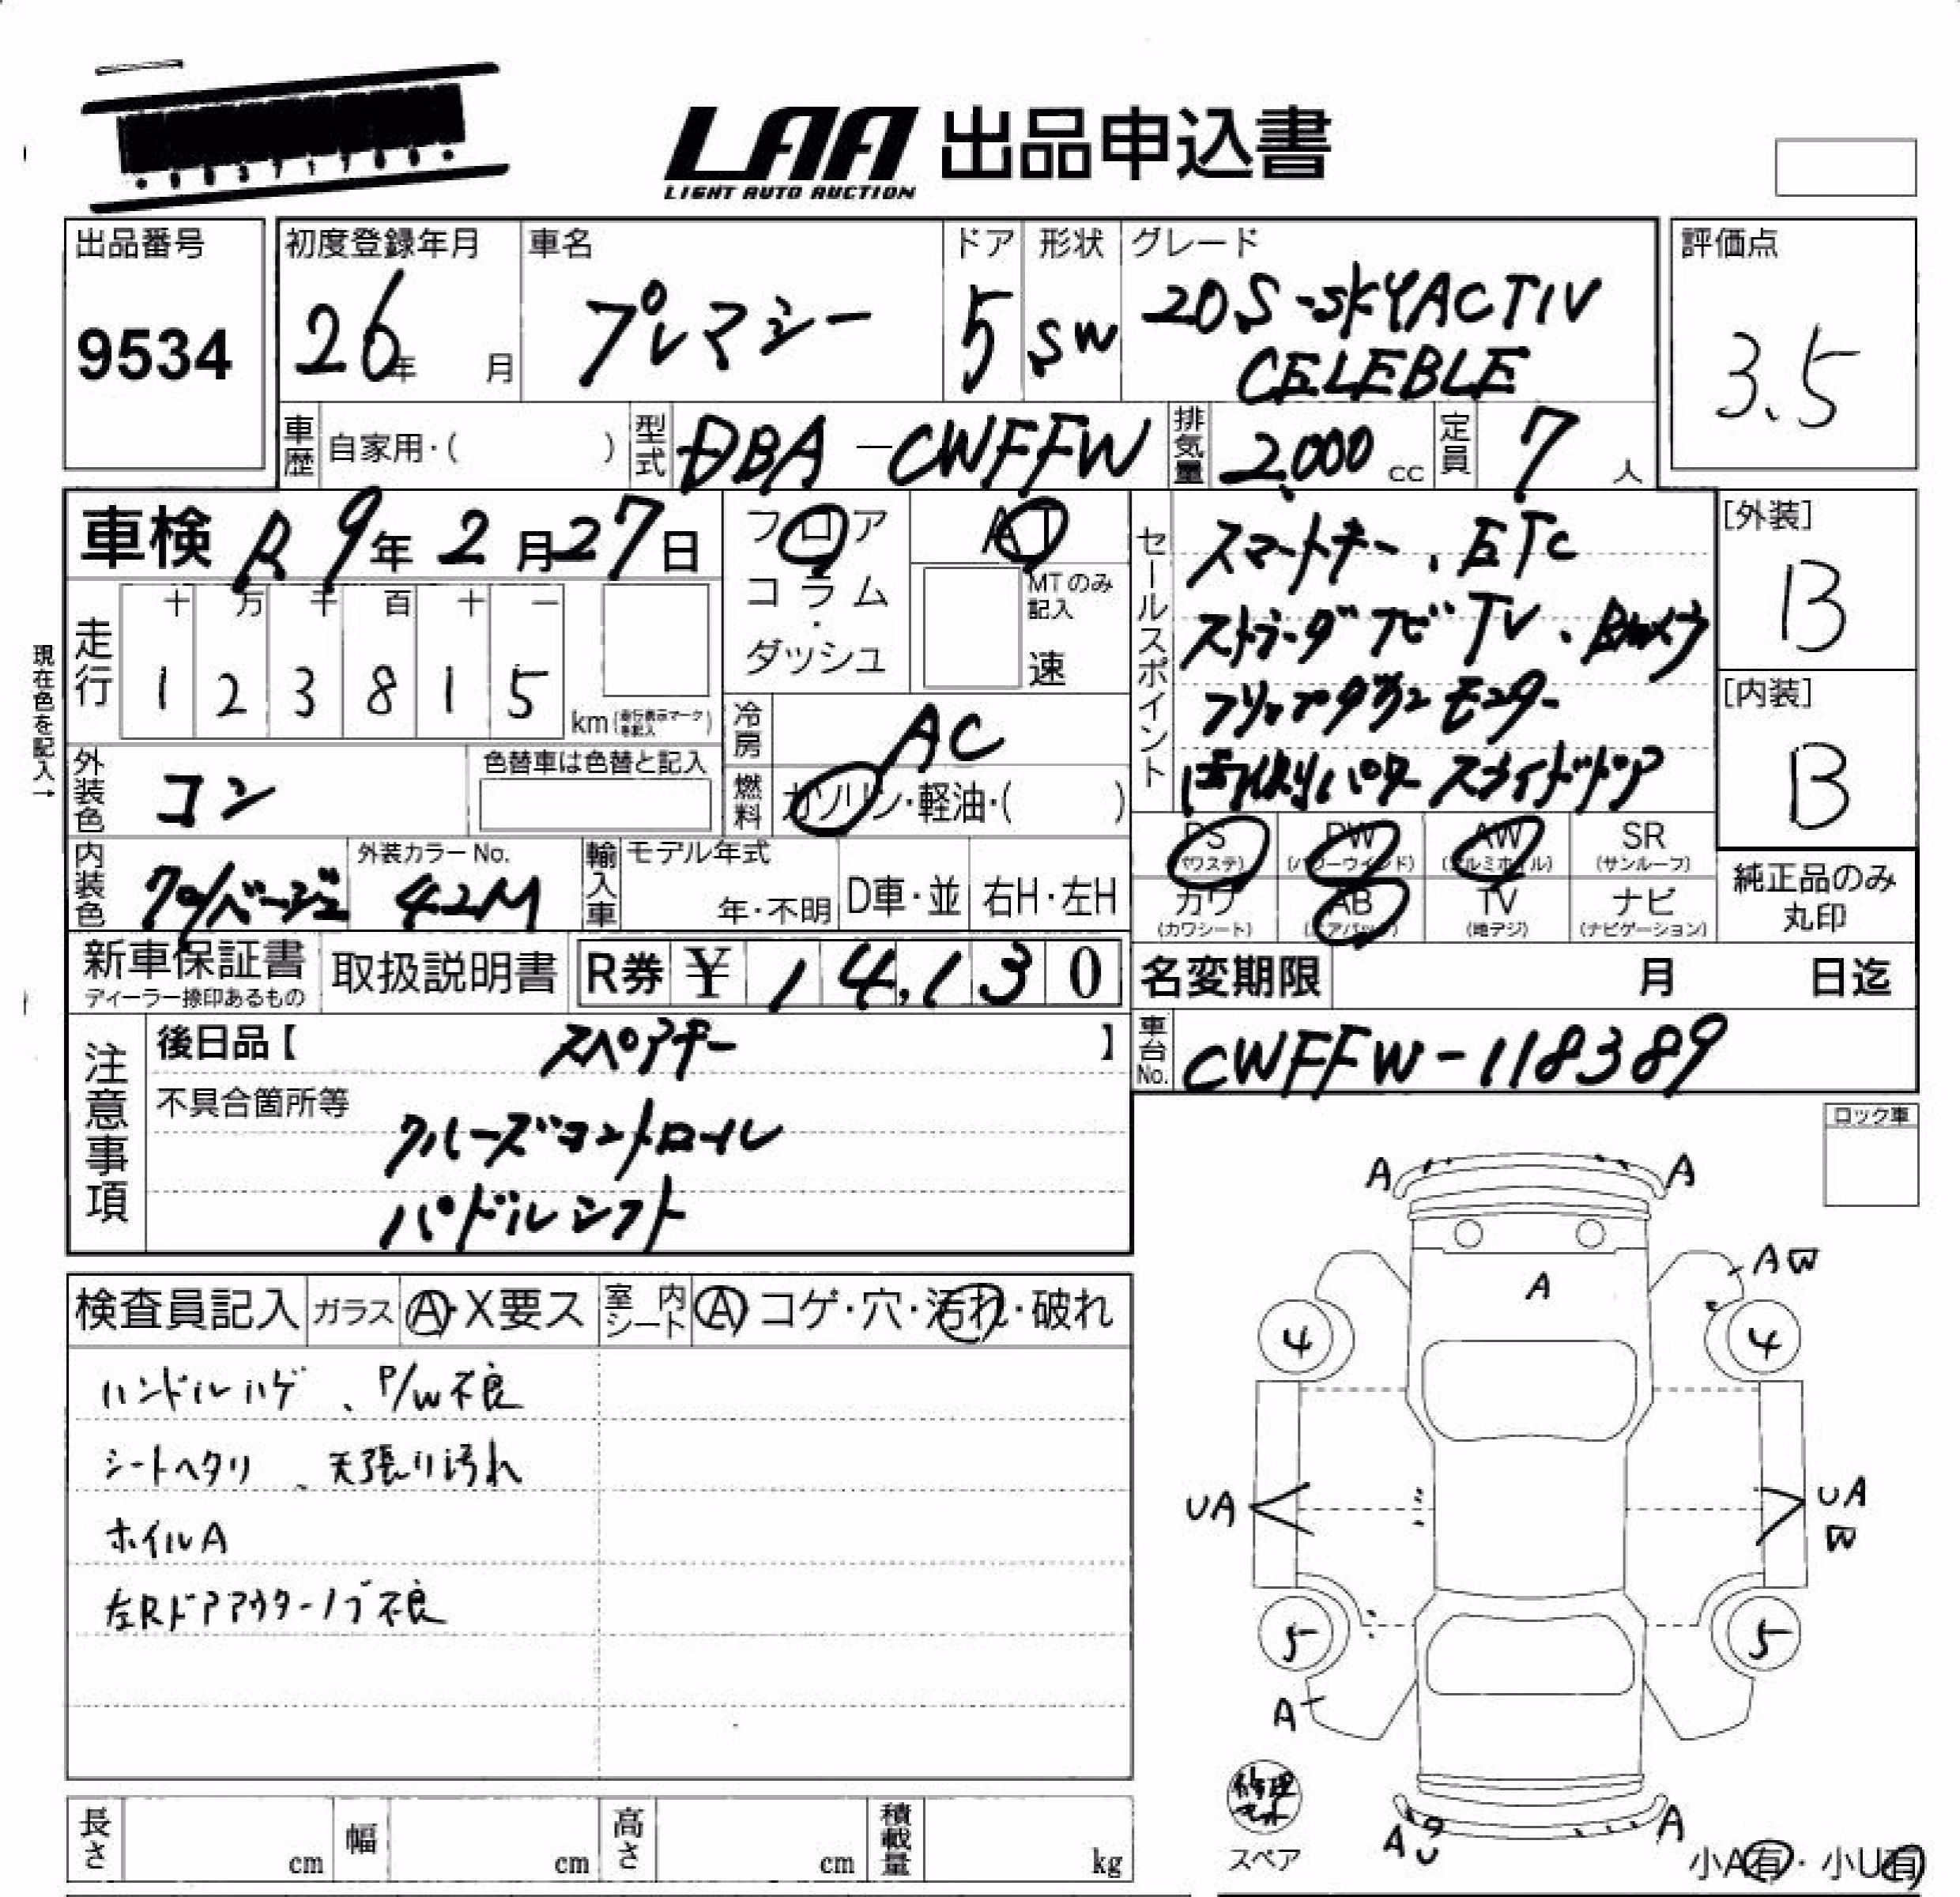 LAA 出品申込書
LIGHT AUTO AUCTION
出品番号
9534
初度登録年月
26年 月
車名
プレマシー
ドア
5
形状
SW
グレード
20S-SKYACTIV
CELEBLE
評価点
3.5
車歴 自家用・( )
型式 DBA-CWFFW
排気量 2,000 cc
定員 7 人
車検 R 9年 2月27日
走行
十 万 千 百 十 一
1 2 3 8 1 5
km(走行表示マークを記入)
現在色を記入→
フロア
コラム
・
ダッシュ
AT
MTのみ
記入
速
冷房 AC
燃料 ガソリン・軽油・( )
外装色 コン
色替車は色替と記入
内装色
外装カラーNo.
42M
輸入車
モデル年式
年・不明
D車・並
右H・左H
セールスポイント
スマートキー、ETC
ストラーダナビTV、Bカメラ
フリップダウンモニター
両側パワースライドドア
[外装]
B
[内装]
B
PS
(パワステ)
PW
(パワーウインド)
AW
(アルミホイル)
SR
(サンルーフ)
カワ
(カワシート)
AB
(エアバッグ)
TV
(地デジ)
ナビ
(ナビゲーション)
純正品のみ
丸印
新車保証書
ディーラー捺印あるもの
取扱説明書
R券 ¥ 14,130
名変期限 月 日迄
車台No. CWFFW-118389
注意事項
後日品【 スペアキー 】
不具合箇所等
クルーズコントロール
パドルシフト
ロック車
検査員記入
ガラス
A・X要ス
室内シート
A コゲ・穴・汚れ・破れ
ハンドルハゲ、P/W不良
シートヘタリ、天張り汚れ
ホイルA
左Rドアアウターノブ不良
A A
A W
A
4 4
UA UA
W
5 5
A
修理キット
スペア
A U A
小A有・小U有
長さ cm
幅 cm
高さ cm
積載量 kg